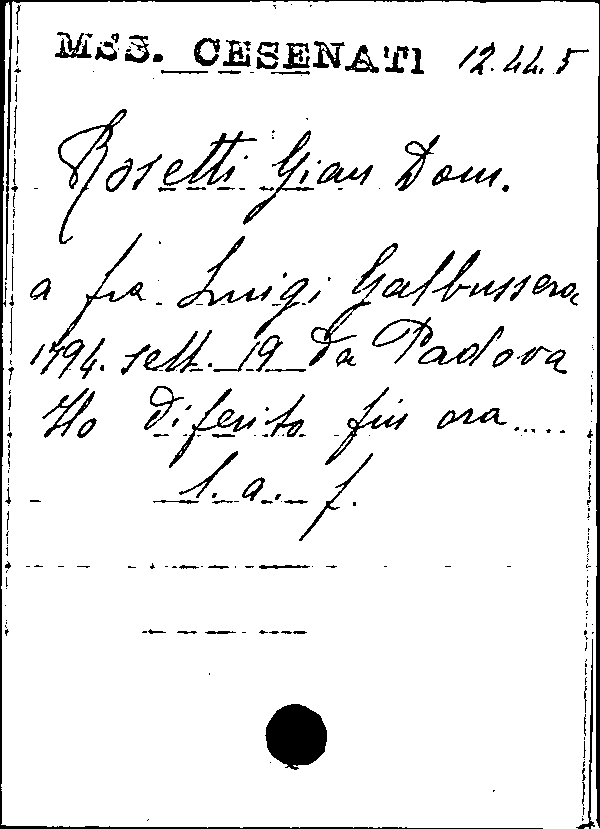 MSS. CESENATI 12.44.5
Rosetti Gian Dom.
a fra Luigi Galbussera
1794. sett. 19 da Padova
Ho diferito fin ora.....
l. a. f.